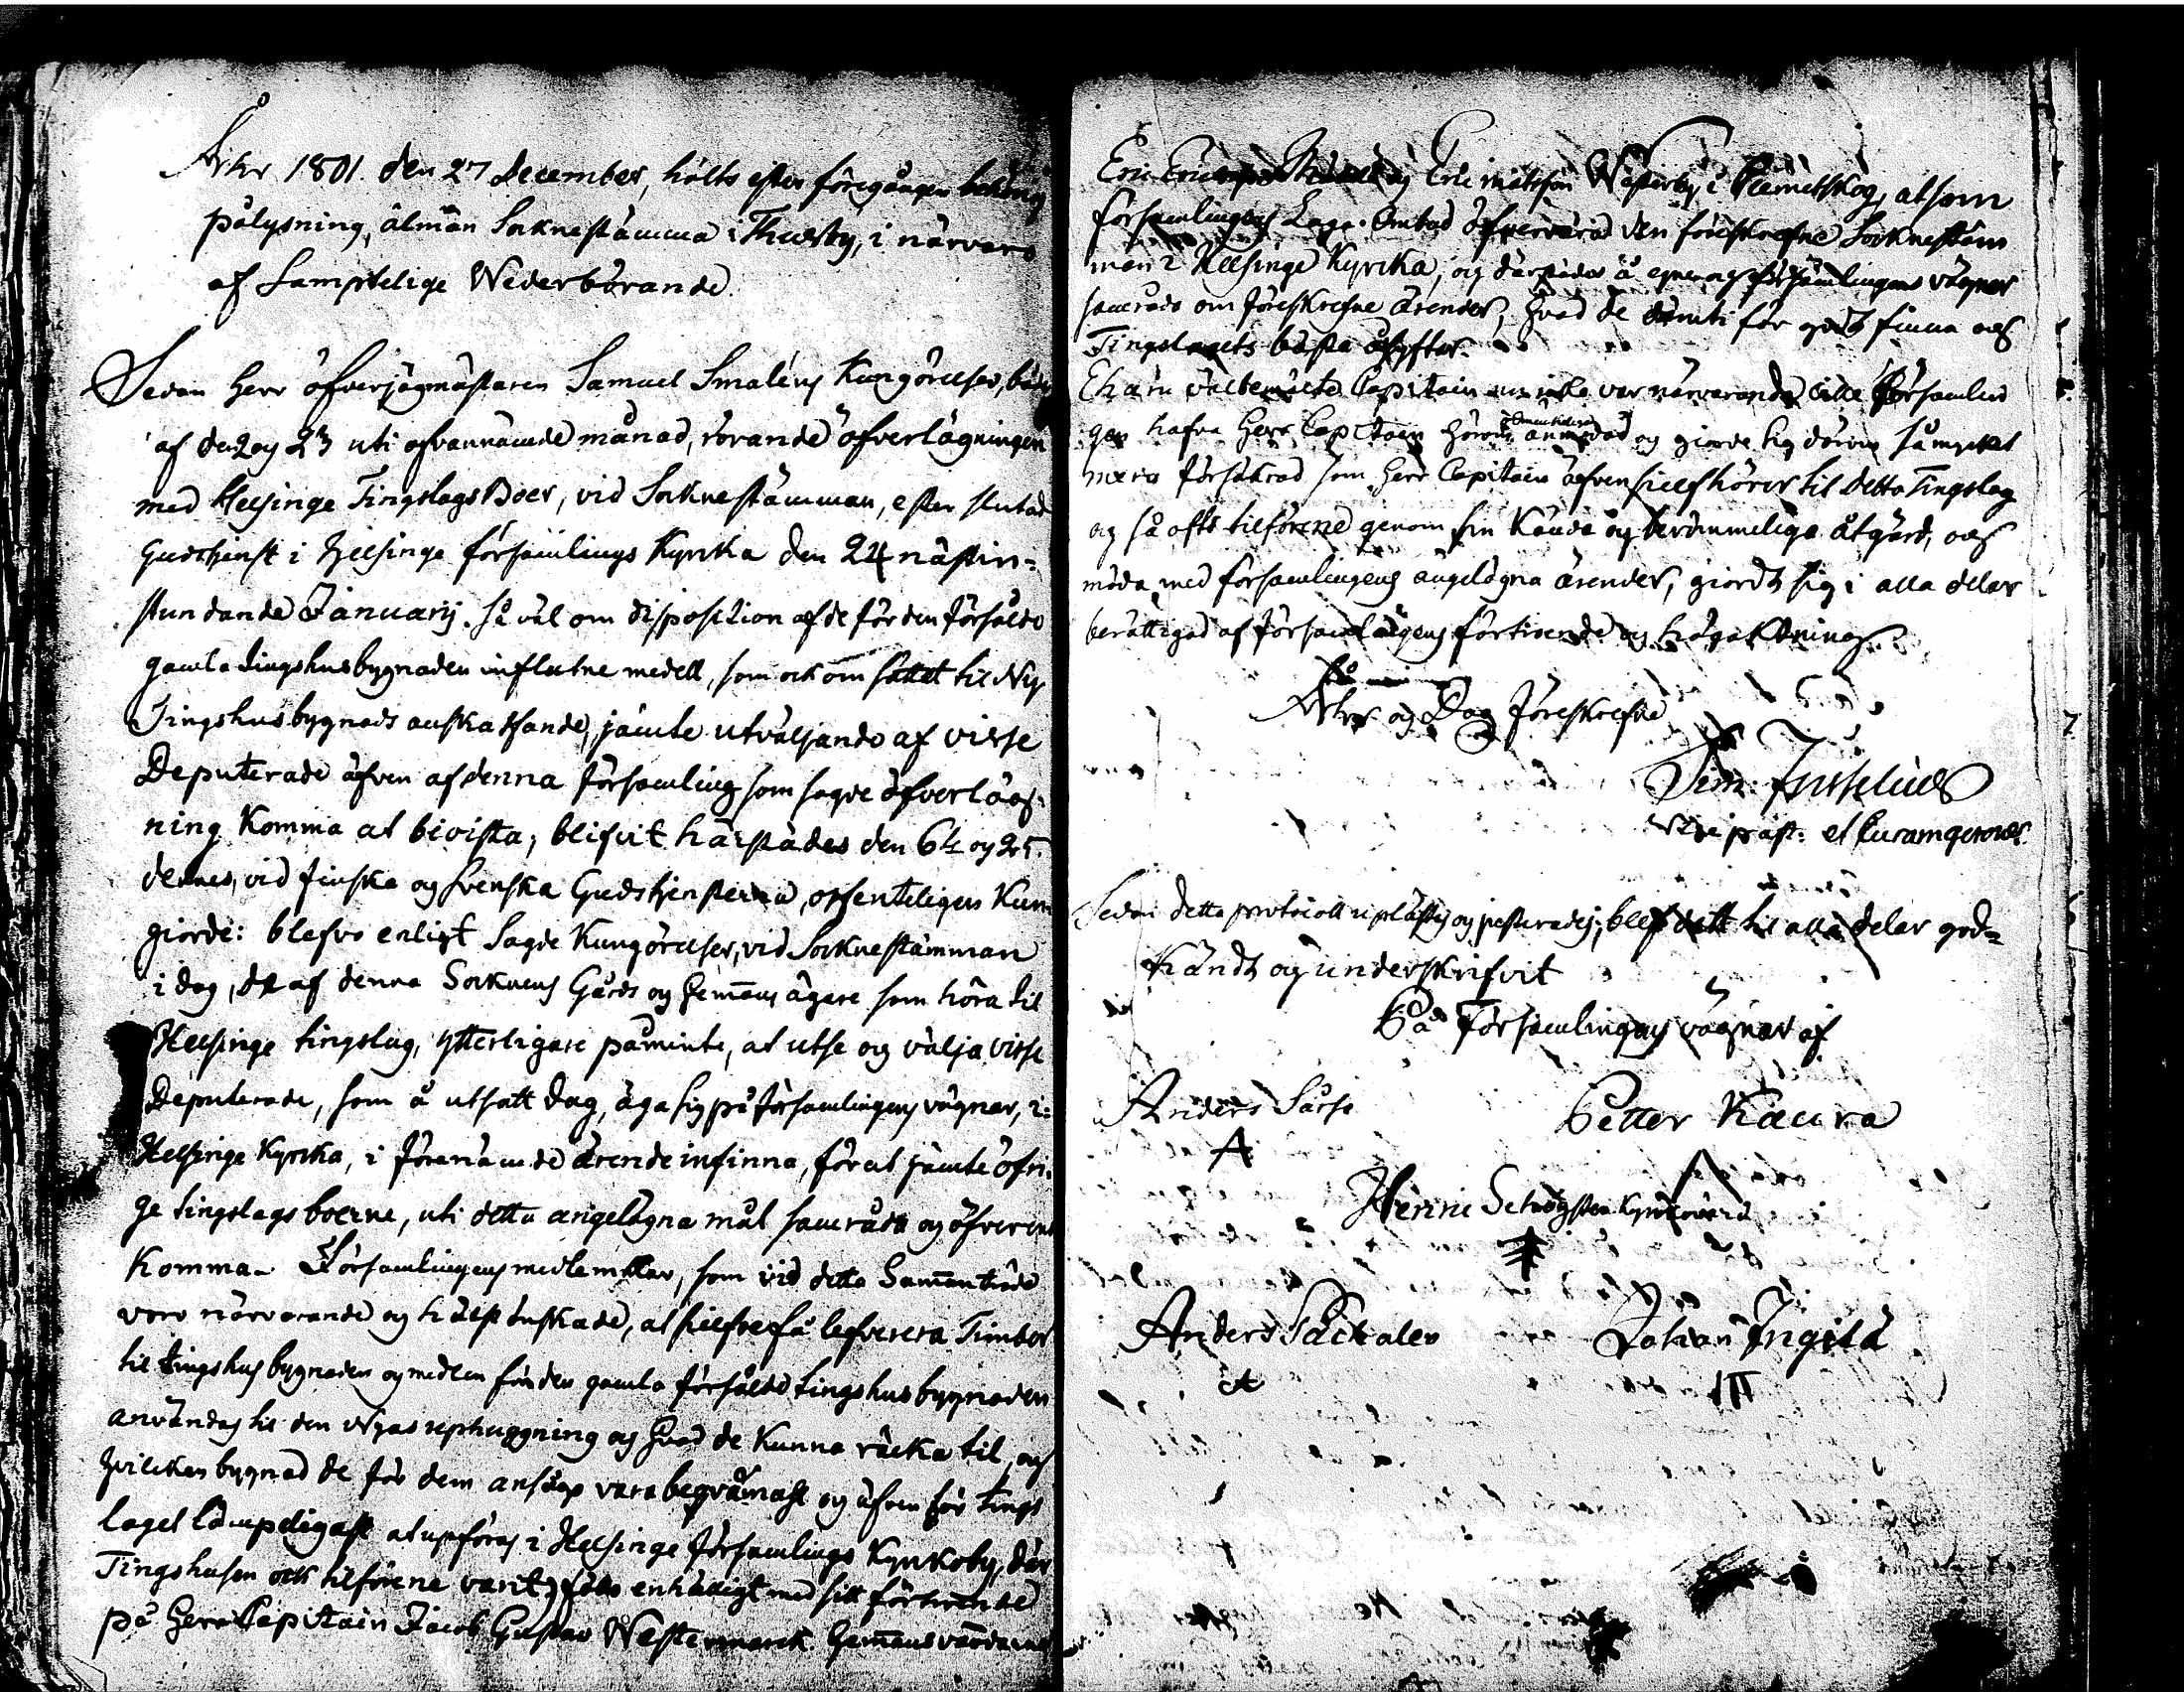 Åhr 1801 den 27 December, hölts efter föregången behörig
pålysning, alman Soknestämma i Thusby, i närvaro
af Samptelige Wederbörande.
Sedan Herr öfverjägmästaren Samuel Smaléns Kungörelser, både
af den 2 og 23 uti ofvannämde månad, rörande öfverlägningen
med Helsinge Tingslags Boer, vid Soknestämman, efter slutad
Gudstjenst i Helsinge församlings Kyrka den 24 nästin-
stundande Januarij. så väl om disposition af de för den försålde
gamla tingshusbygnaden influtne medell, som ock om sättet til Ny
Tingshusbygnads anskaffande, jämte utväljande af visse
Deputerade äfven af denna församling som sagde öfverlägg-
ning komma at bivista; blifvit härstädes den 6te og 25.
dennes, vid finska og svenska Gudstjensterna, offenteligen Kun-
giorde: blefvo enligt Sagde Kungörelser, vid Soknestämman
i dag, de af denna Soknens Gårds og Hemans ägare som höra til
Helsinge tingslag, ytterligare påminte, at utse og välja visse
Deputerade, som å utsatt dag, äga sig på församlingens vägnar, i
Helsinge Kyrka, i förenämde ärende infinna, för at jämte öfri-
ge tingslags boerne, uti detta angelägna mål samråda og öfverens
komma. Församlingens medlemmar, som vid detta Sammanträde
voro närvarande og hälst önskade, at sielfve få lefverera Timber
til tingshus bygnaden og medlen för den gamla försålde tingshusbygnaden
användas til den Nyas uphuggning og hvad de kunna räcka til, og
hvilcken bygnad de för dem ansågo vara beqvämast og äfven för tings
laget lämpeligast at upföras i Helsinge församlings Kyrkoby, där
Tingshusen ock tilförene varit, föllo enhälligt med sitt förtroende
på Herr Capitain Jacob Gustav Westermarck. Hemans värdarne
Eric og Eric Matsson Westerby i Klemetskog, at som
församlingens Laga Ombud öfvervara den föreskrefne Soknestäm
man i Helsinge Kyrka, og därstädes å egne og församlingens vägnar
samråda om föreskrefne ärender, hvad de däruti för godt finna og
Tingslagets bästa åsyftar.
Ehuru välbemälte Capitain nu icke var närvarande ville församlin
gen hafva Herr Capitain härom anmodad og giorde sig därom så mycket
mera försäkrad som Herr Capitain äfven sielf hörer til detta Tingslag
og så ofta tilförene genom sin kända og berömmeliga åtgärd, og
möda, med församlingens angelägna ärender, giordt sig i alla delar
berättigad af församlingens förtroende og högaktning.
Åhr og Dag föreskrefne
Sim: Jusselius
Vice past: et
Sedan detta protocoll uplästes og justerades; blef dett til alla delar god-
kändt og underskrifvit
På Församlingens vägnar af
Anders Särse
A
Petter Kaura
Henric kyrkovärd
Anders Säckalen
A
Johan Ingilä